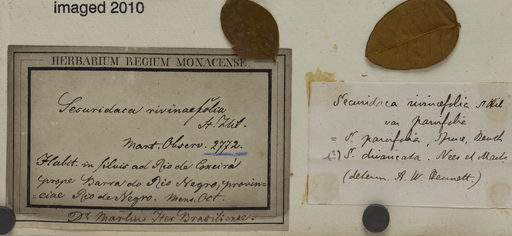 imaged 2010
HERBARIUM REGIUM MONACENSE.
Securidaca rivinaefolia
A. St Hil.
Mart. Observ. 2772.
Habit. in silvis ad Rio de
prope Barra do Rio Negro, provin-
ciae Rio de Negro. Mens. Oct.
Dr. Martius Iter Brasiliense.
Securidaca rivinaefolia St Hil
var parvifolia
= S. parvifolia, Benth
S. divaricata. Nees et Mart
(determ. A. W. Bennett.)